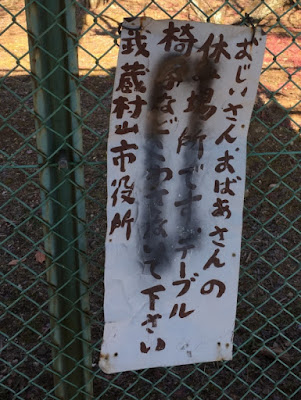 おじいさんおばあさんの
休み場所です、テーブル
椅子などこわさないで下さい
武蔵村山市役所